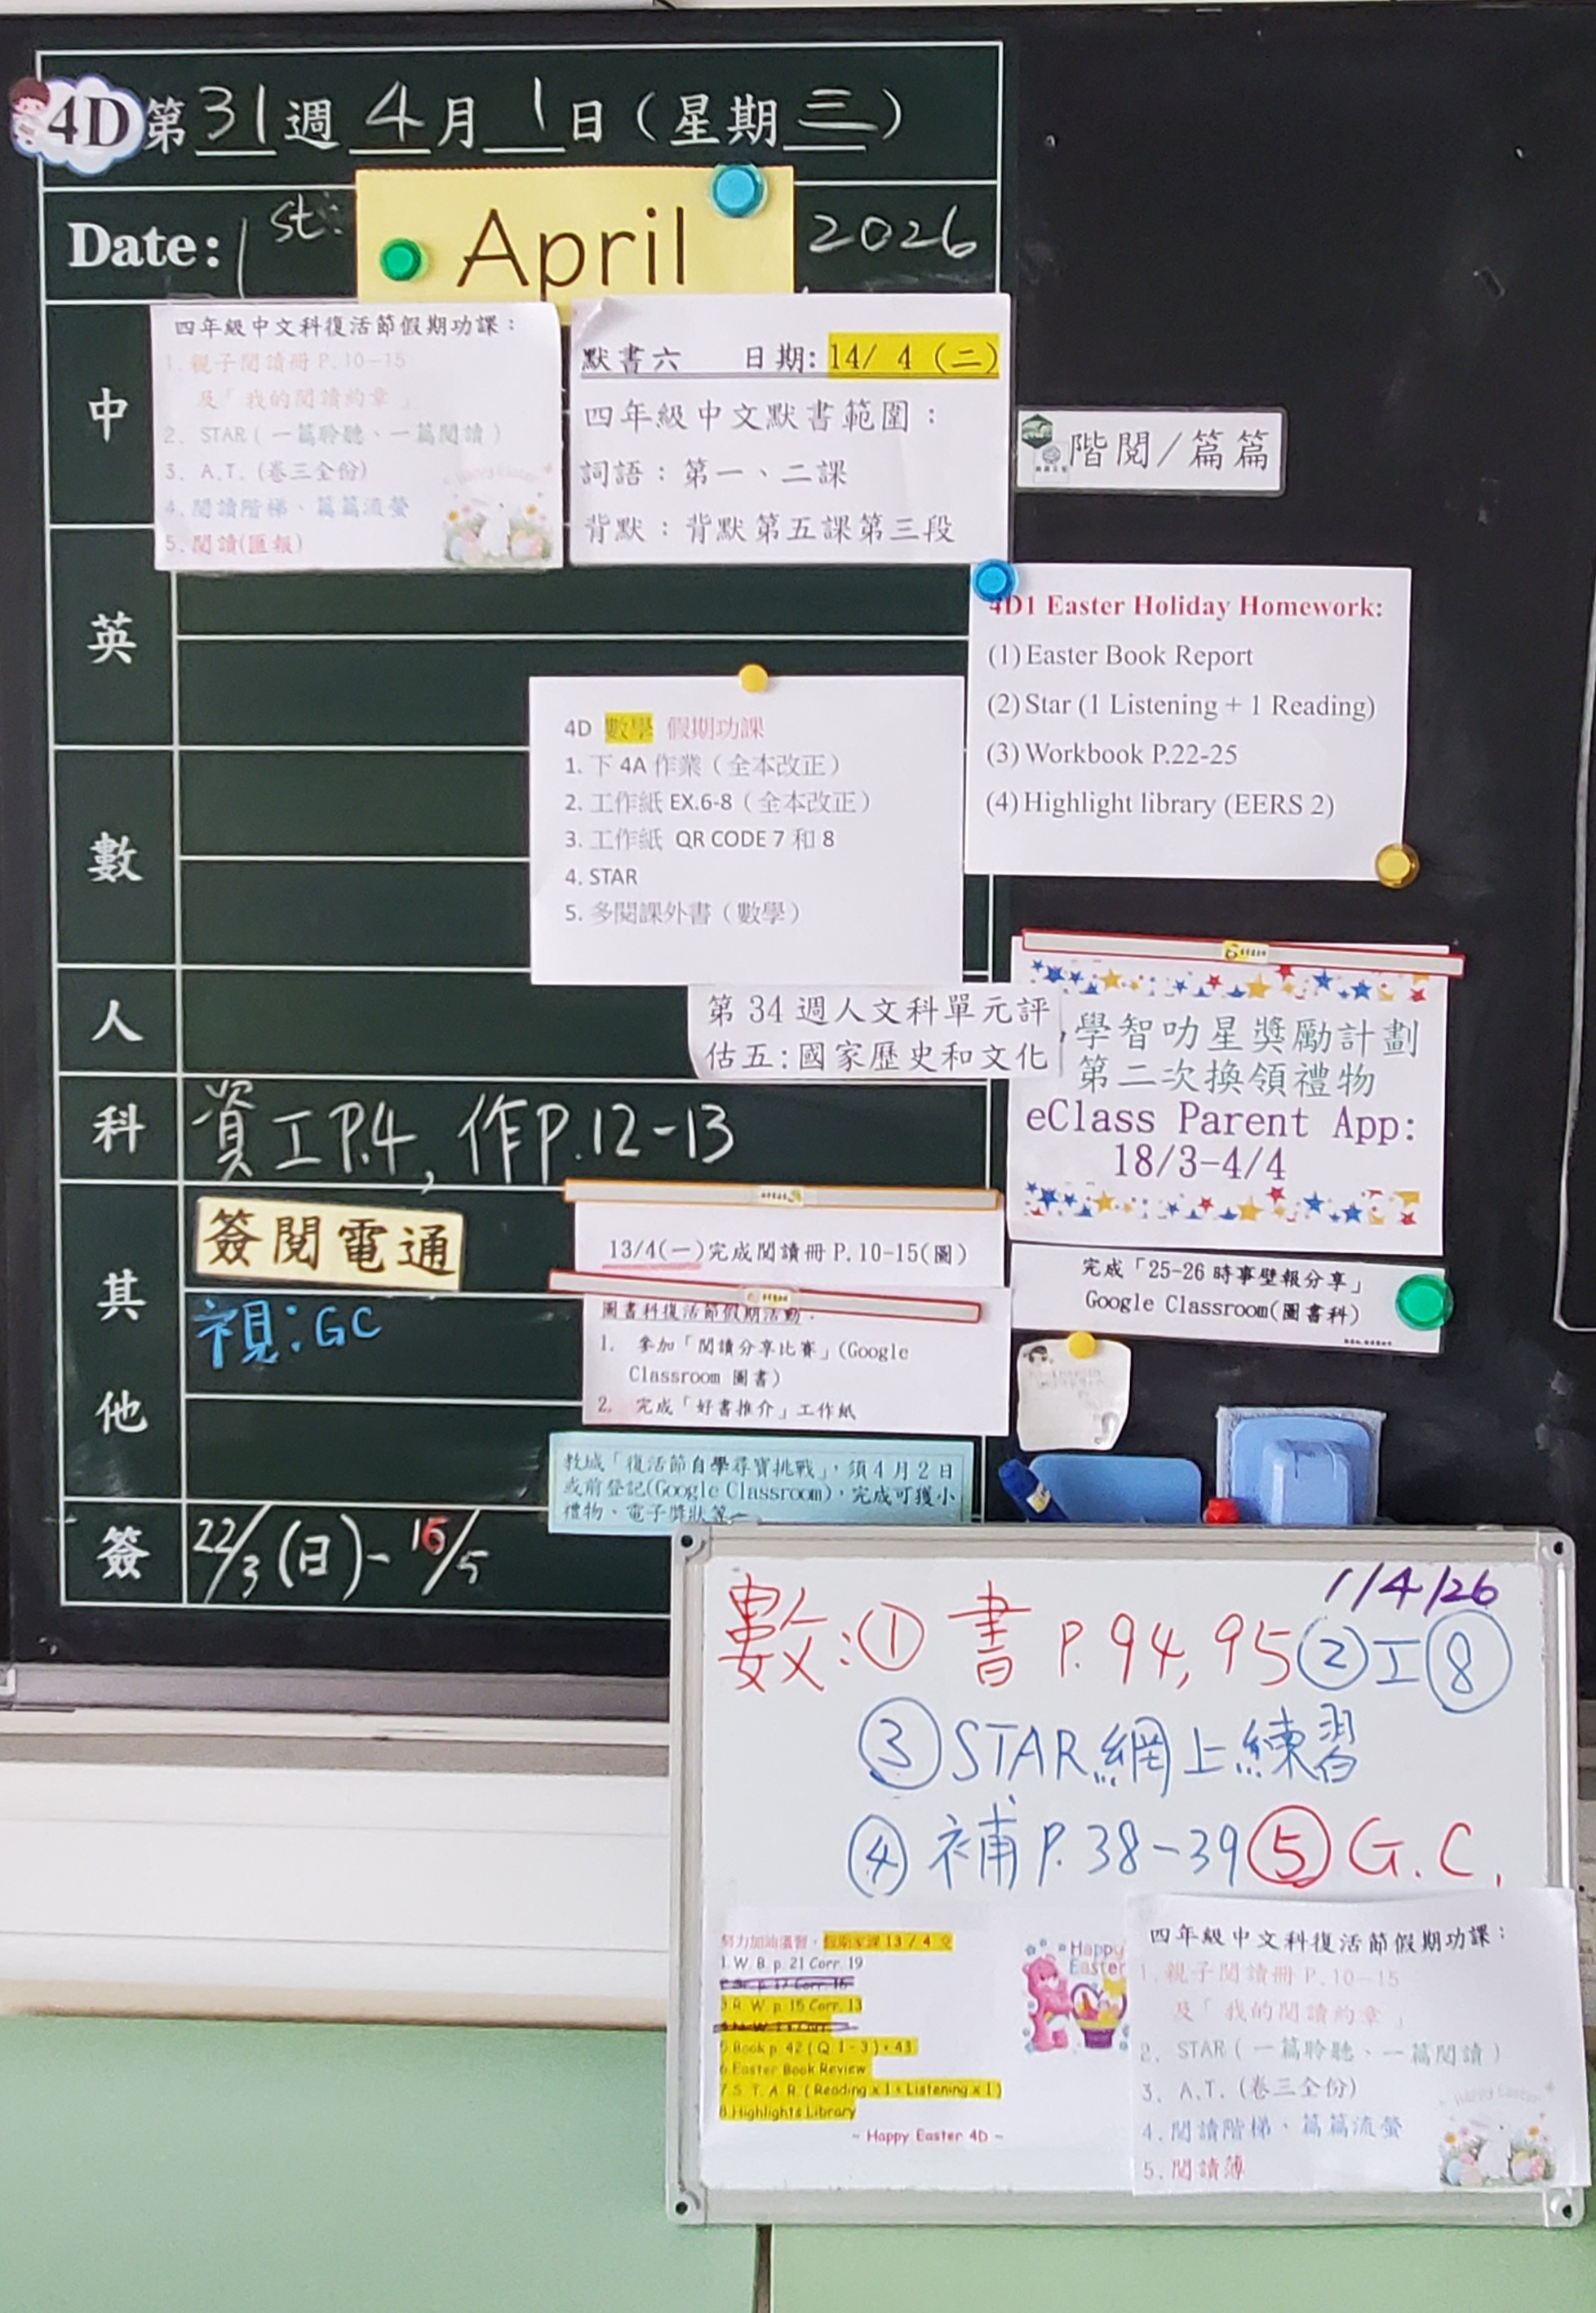 4D 第31週4月1日(星期三)
Date: 1st April 2026
中
四年級中文科復活節假期功課：
1. 親子閱讀冊 P.10-15
及「我的閱讀約章」
2. STAR（一篇聆聽、一篇閱讀）
3. A.T. (卷三全份)
4. 閱讀階梯、篇篇流螢
5. 閱讀(匯報)
默書六 日期: 14/ 4 (二)
四年級中文默書範圍：
詞語：第一、二課
背默：背默第五課第三段
階閱/篇篇
英
4D1 Easter Holiday Homework:
(1) Easter Book Report
(2) Star (1 Listening + 1 Reading)
(3) Workbook P.22-25
(4) Highlight library (EERS 2)
數
4D 數學 假期功課
1. 下 4A 作業（全本改正）
2. 工作紙 EX.6-8（全本改正）
3. 工作紙 QR CODE 7 和 8
4. STAR
5. 多閱課外書（數學）
人
第 34 週人文科單元評
估五:國家歷史和文化
學智叻星獎勵計劃
第二次換領禮物
eClass Parent App:
18/3-4/4
科
資工P.4, 作P.12-13
其他
簽閱電通
13/4(一)完成閱讀冊 P.10-15(圖)
視:GC
圖書科復活節假期活動:
1. 參加「閱讀分享比賽」(Google
Classroom 圖書)
2. 完成「好書推介」工作紙
完成「25-26 時事壁報分享」
Google Classroom(圖書科)
教城「復活節自學尋寶挑戰」，須4月2日
或前登記(Google Classroom)，完成可獲小
禮物、電子獎狀等
簽
22/3(日)-15/5
1/4/26
數:① 書 P.94,95 ②工⑧
③STAR網上練習
④補P.38-39 ⑤G.C.
努力加油溫習，假期家課 13 / 4 交
1. W. B. p. 21 Corr. 19
3. R. W. p. 15 Corr. 13
5. Book p. 42 ( Q 1 - 3 ) + 43
6. Easter Book Review
7. S. T. A. R. ( Reading x 1 + Listening x 1 )
8. Highlights Library
~ Happy Easter 4D ~
Happy
Easter
四年級中文科復活節假期功課：
1. 親子閱讀冊 P.10-15
及「我的閱讀約章」
2. STAR（一篇聆聽、一篇閱讀）
3. A.T. (卷三全份)
4. 閱讀階梯、篇篇流螢
5. 閱讀簿